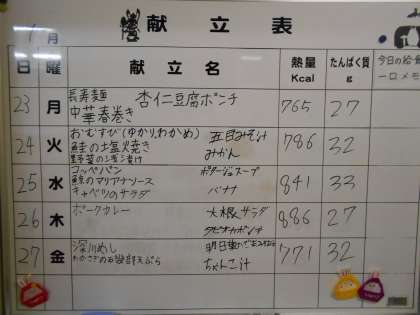 献立表
月
日 曜 献立名 熱量 Kcal たんぱく質 g 今日の給食 一口メモ
23 月 長寿麺 杏仁豆腐ポンチ 765 27
中華春巻き
24 火 おむすび(ゆかり,わかめ) 五目みそ汁 786 32
鮭の塩焼き みかん
野菜の
25 水 コッペパン ポタージュスープ 841 33
鯨のマリアナソース バナナ
キャベツのサラダ
26 木 ポークカレー 大根サラダ 886 27
タピオカポンチ
27 金 深川めし 771 32
わかさぎの 天ぷら ちゃんこ汁